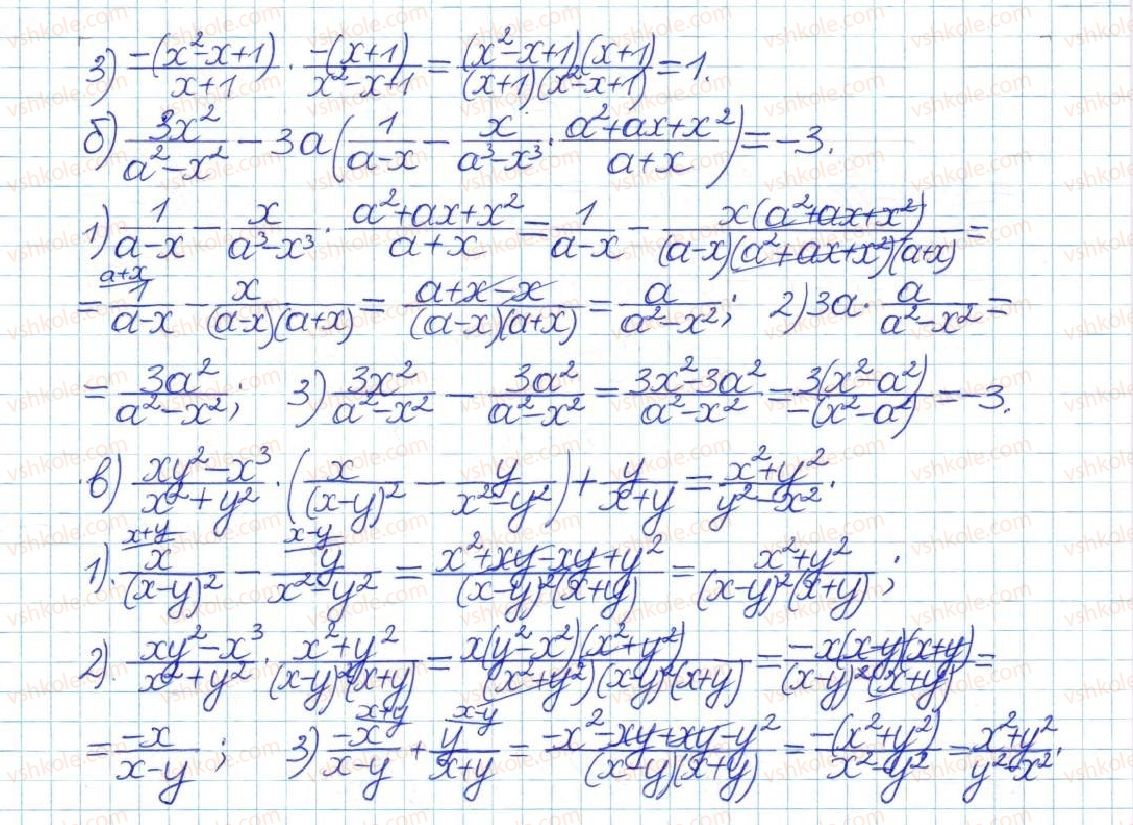 3) -(x²-x+1)/(x+1) · -(x+1)/(x²-x+1) = (x²-x+1)(x+1)/((x+1)(x²-x+1)) = 1.
б) 3x²/(a²-x²) - 3a(1/(a-x) - x/(a³-x³) · (a²+ax+x²)/(a+x)) = -3.
1) 1/(a-x) - x/(a³-x³) · (a²+ax+x²)/(a+x) = 1/(a-x) - x(a²+ax+x²)/((a-x)(a²+ax+x²)(a+x)) =
a+x
= 1/(a-x) - x/((a-x)(a+x)) = (a+x-x)/((a-x)(a+x)) = a/(a²-x²); 2) 3a · a/(a²-x²) =
= 3a²/(a²-x²); 3) 3x²/(a²-x²) - 3a²/(a²-x²) = (3x²-3a²)/(a²-x²) = 3(x²-a²)/(-(x²-a²)) = -3.
в) (xy²-x³)/(x²+y²) · (x/(x-y)² - y/(x²-y²)) + y/(x+y) = (x²+y²)/(y²-x²).
x+y x-y
1). x/(x-y)² - y/(x²-y²) = (x²+xy-xy+y²)/((x-y)²(x+y)) = (x²+y²)/((x-y)²(x+y));
2). (xy²-x³)/(x²+y²) · (x²+y²)/((x-y)²(x+y)) = x(y²-x²)(x²+y²)/((x²+y²)(x-y)²(x+y)) = -x(x-y)(x+y)/((x-y)²(x+y)) =
x+y x-y
= -x/(x-y); 3) -x/(x-y) + y/(x+y) = (-x²-xy+xy-y²)/((x-y)(x+y)) = -(x²+y²)/(x²-y²) = (x²+y²)/(y²-x²).
vshkole.com